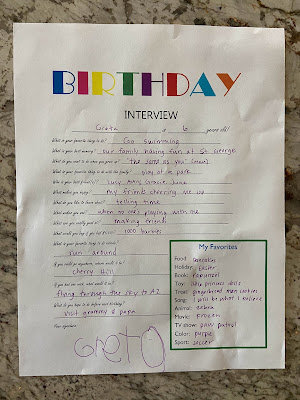 BIRTHDAY
INTERVIEW
Greta is 6 years old!
What is your favorite thing to do? Goo swimming
What is your best memory? our family having fun at St George
What do you want to be when you grow up? the same as you (mom)
What is your favorite thing to do with the family? play at the park
Who is your best friend? Lucy, Amy, Gracie, June
What makes you happy? my friends cheering me up
What do you like to learn about? telling time
What makes you sad? when no one's playing with me
What are you really good at? making friends
What would you buy if you had 1000 barbies
What is your favorite thing to do outside?
run around
If you could go anywhere, where would it be?
cherry hill
If you had one wish, what would it be?
flying through the sky to AZ
What do you hope to do before next birthday?
visit grammy & papa
Your signature:
GRETA
My Favorites
Food: pancakes
Holiday: Easter
Book: Rapunzel
Toy: princess dolls
Treat: gingerbread man cookies
Song: I will be what I believe
Animal: zebra
Movie: Frozen
TV show: paw patrol
Color: purple
Sport: soccer